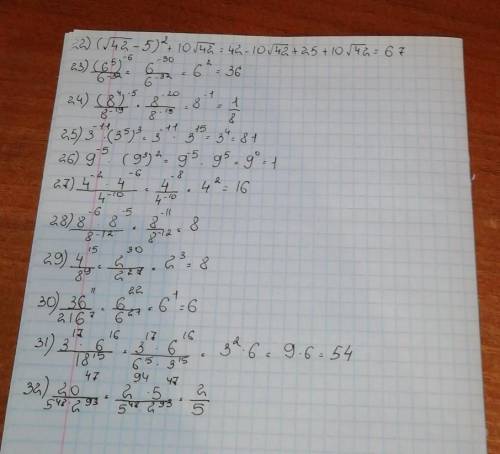 22) (√42 - 5)² + 10√42 = 42 - 10√42 + 25 + 10√42 = 67
23) (6⁵)⁻⁶ / 6⁻³² = 6⁻³⁰ / 6⁻³² = 6² = 36
24) (8⁴)⁻⁵ / 8⁻¹⁹ = 8⁻²⁰ / 8⁻¹⁹ = 8⁻¹ = 1/8
25) 3⁻¹¹ · (3⁵)³ = 3⁻¹¹ · 3¹⁵ = 3⁴ = 81
26) 9⁻⁵ · (9³)² = 9⁻⁵ · 9⁵ = 9⁰ = 1
27) 4⁻² · 4⁻⁶ / 4⁻¹⁰ = 4⁻⁸ / 4⁻¹⁰ = 4² = 16
28) 8⁻⁶ · 8⁻⁵ / 8⁻¹² = 8⁻¹¹ / 8⁻¹² = 8
29) 4¹⁵ / 8⁹ = 2³⁰ / 2²⁷ = 2³ = 8
30) 36¹¹ / 216⁷ = 6²² / 6²¹ = 6¹ = 6
31) 3¹⁷ · 6¹⁶ / 18¹⁵ = 3¹⁷ · 6¹⁶ / 6¹⁵ · 3¹⁵ = 3² · 6 = 9 · 6 = 54
32) 20⁴⁷ / 5⁴⁸ · 2⁹³ = 2⁹⁴ · 5⁴⁷ / 5⁴⁸ · 2⁹³ = 2/5